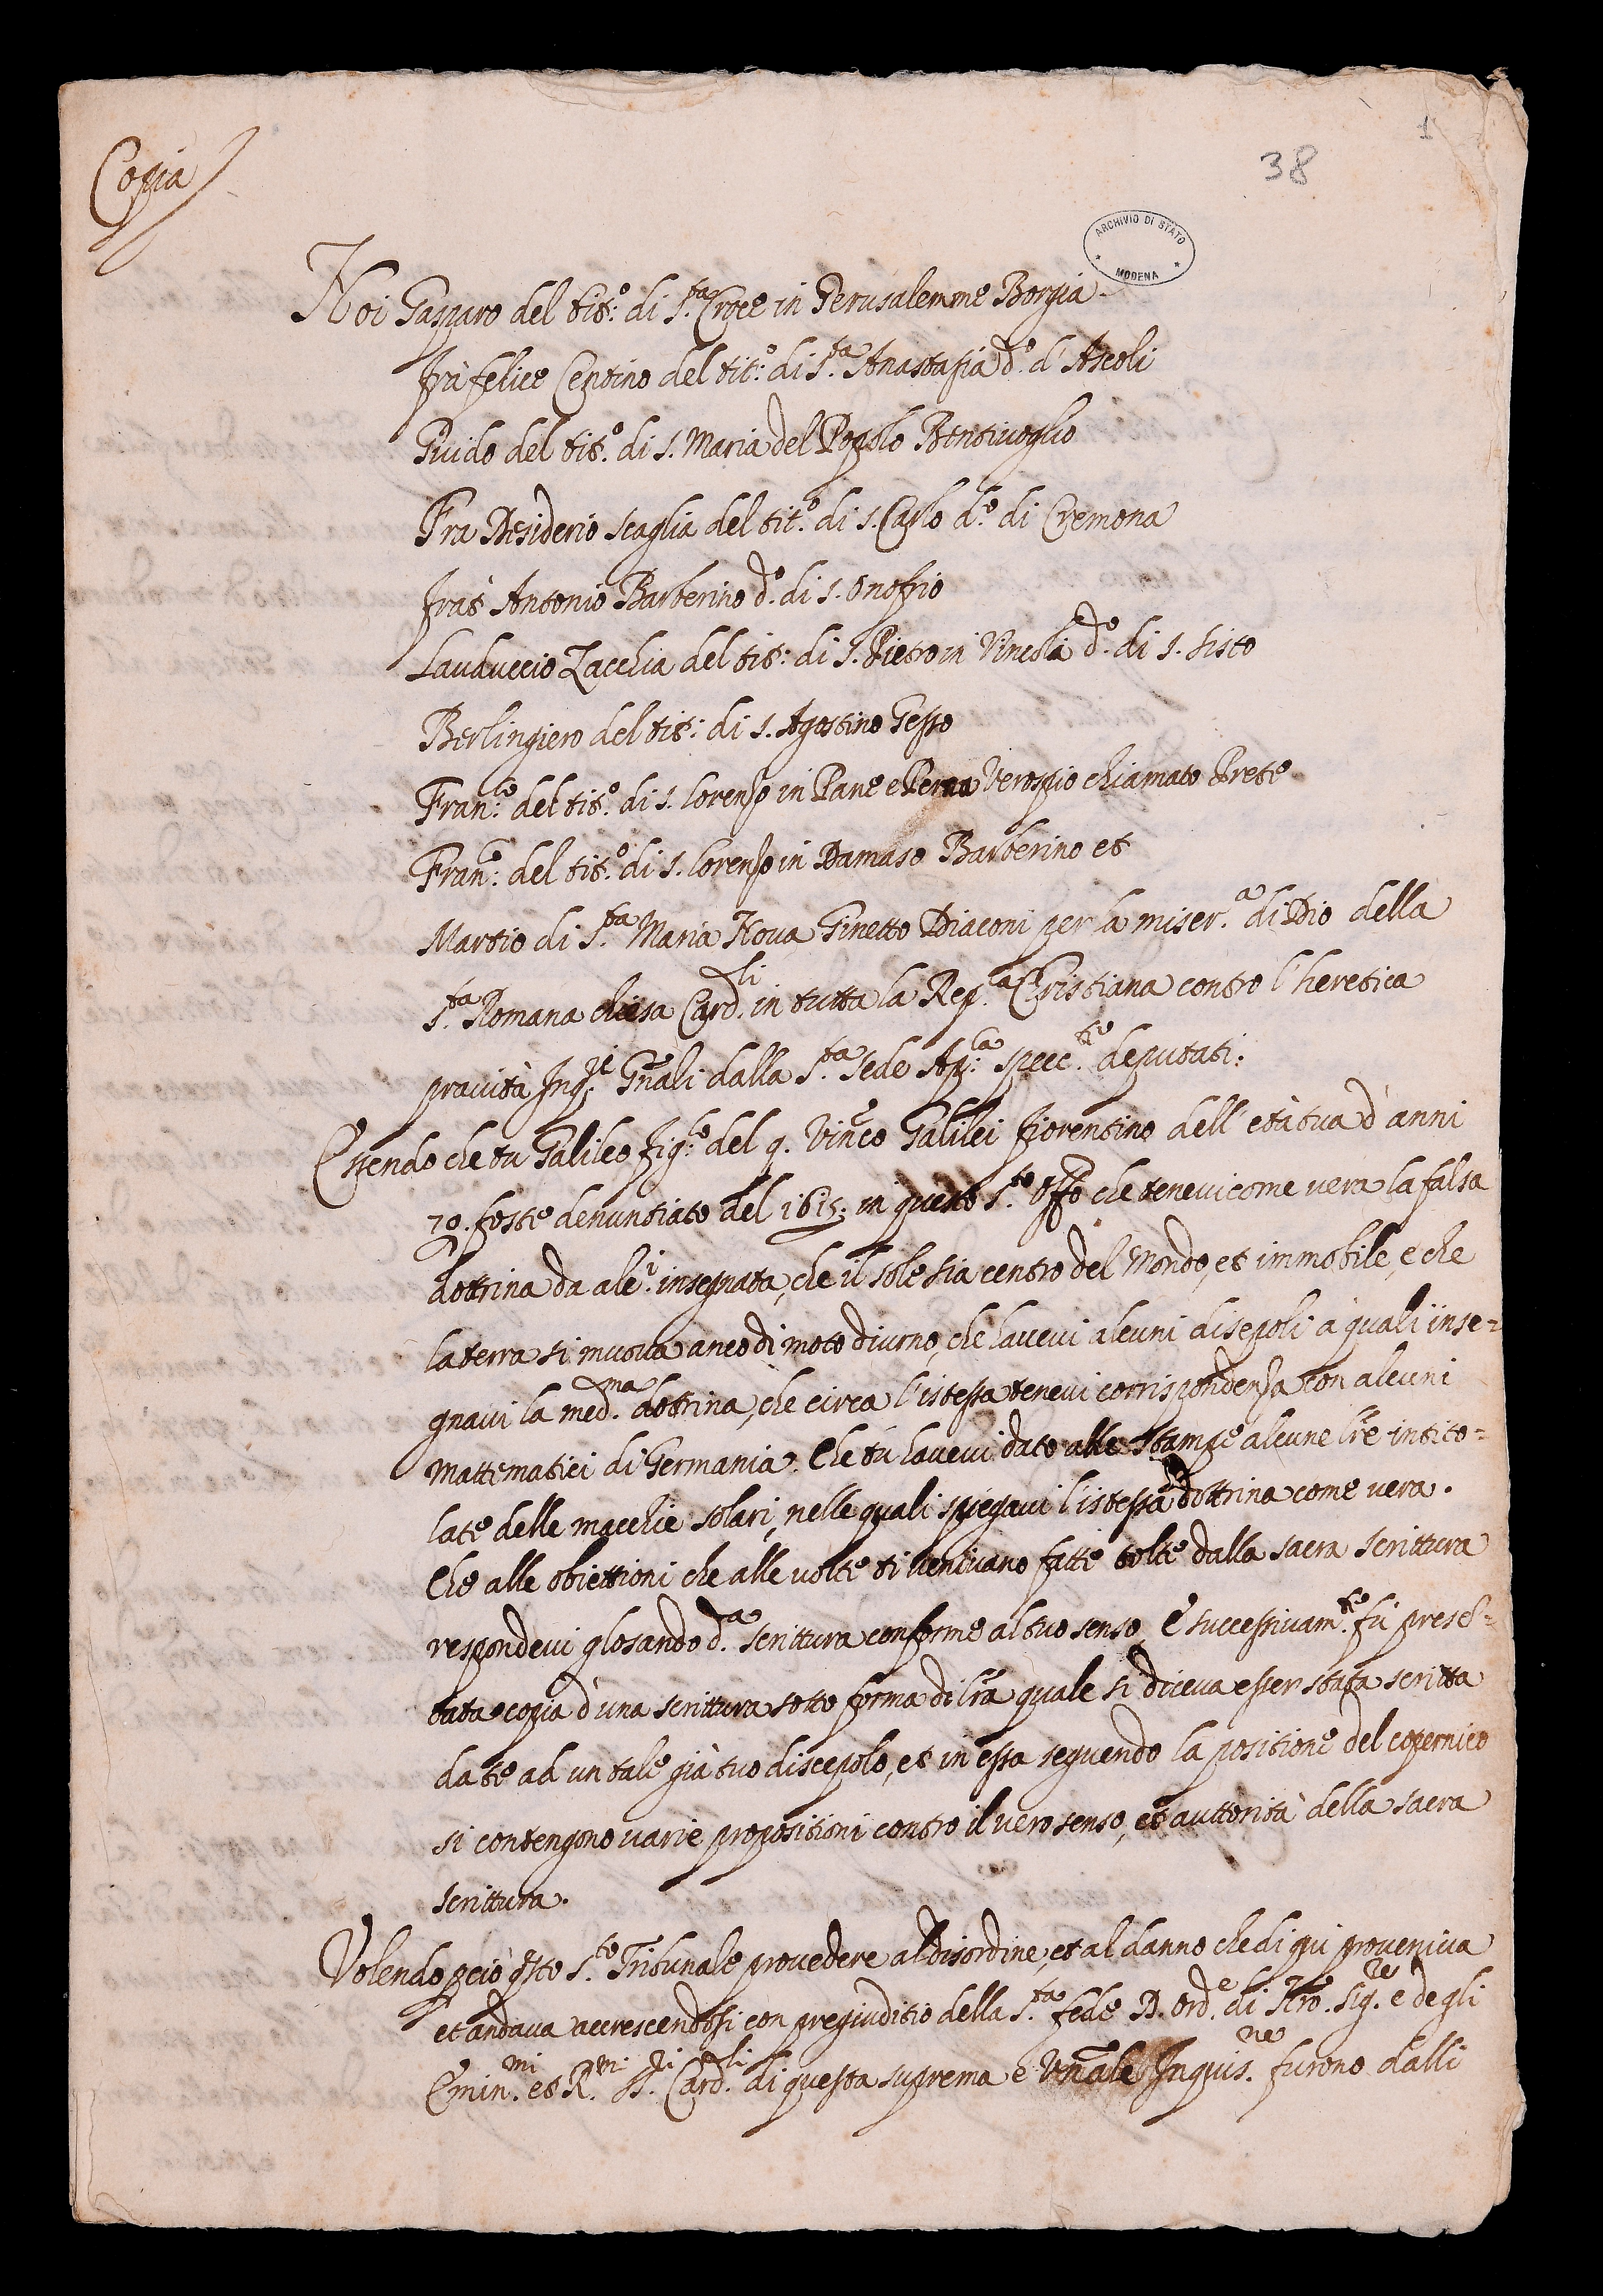 Copia
1
38
ARCHIVIO DI STATO
MODENA
Noi Gasparo del tit.º di S.ta Croce in Gerusalemme Borgia
frà felice Centino del tit.º di S.ta Anastasia d.º d'Ascoli
Guido del tit.º di S. Maria del Popolo Bentivoglio
Fra Desiderio scaglia del tit.º di S. Carlo d.º di Cremona
frat' Antonio Barberino d.º di S. Onofrio
Lauduccio Zacchia del tit: di S. Pietro in Vincola d.º di S. Sisto
Berlingiero del tit: di S. Agostino Gesso
Fran.co del tit.º di S. Lorenzo in Pane e Perna Verospio chiamato Prete
Fran.co del tit.º di S. Lorenzo in Damaso Barberino et
Martio di S.ta Maria Nova Ginetto Diaconi per la miser.a di Dio della
S.ta Romana chiesa Card.li in tutta la Rep.ca Christiana contro l'heretica
pravità Inq.ri Gñali dalla S.ta Sede Ap.ca spec.te deputati:
Essendo che tu Galileo fig.lo del q. Vinc.º Galilei fiorentino dell'età tua d'anni
70. foste denuntiato del 1615: in questo S.to Offo che tenevi come vera la falsa
dottrina da alc.i insegnata, che il sole sia centro del Mondo, et immobile, e che
la terra si muova anco di moto diurno, che havevi alcuni discepoli à quali inse=
gnavi la med.ma dottrina, che circa l'istessa tenevi corrispondenza con alcuni
Mattematici di Germania. Che tù havevi dato alle stampe alcune lr̃e intito=
late delle macchie solari, nelle quali spiegavi l'istessa dottrina come vera.
Che alle obiettioni che alle volte ti venivano fatte tolte dalla sacra scrittura
respondevi glosando d.a scrittura conforme al tuo senso. E successivam.te fù presẽ=
tata copia d'una scrittura sotto forma di lr̃a quale si diceva esser stata scritta
da te ad un tale già tuo discepolo, et in essa seguendo la positione del copernico
si contengono varie propositioni contro il vero senso, et auttorità della sacra
scrittura.
Volendo ꝑciò q̃sto S.to Tribunale provedere al disordine, et al danno che di qui proveniva
et andava accrescendosi con pregiuditio della S.ta fede D. ord.e di N̄ro. Sig.re e degli
Emin.mi et R.mi SS.ri Card.li di questa suprema e Uñale Inquis.ne furono dalli